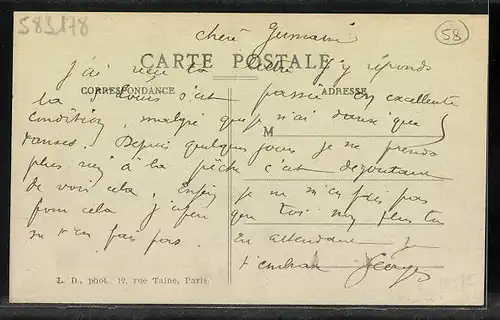 583178
58
Chère Germaine
CARTE POSTALE
J'ai reçu ta lettre j'y réponds
CORRESPONDANCE ADRESSE
la s'est passée en excellente
condition, malgré que je n'ai dansé que
M
danses. Depuis quelques jours je ne prends
plus rien à la pêche c'est dégoutant
de voir cela, Enfin je ne m'en fais pas
pour cela j'espère que toi non plus tu
ne t'en fais pas. En attendant je
t'embrasse Georges
L. D., phot., 12, rue Taine, Paris.